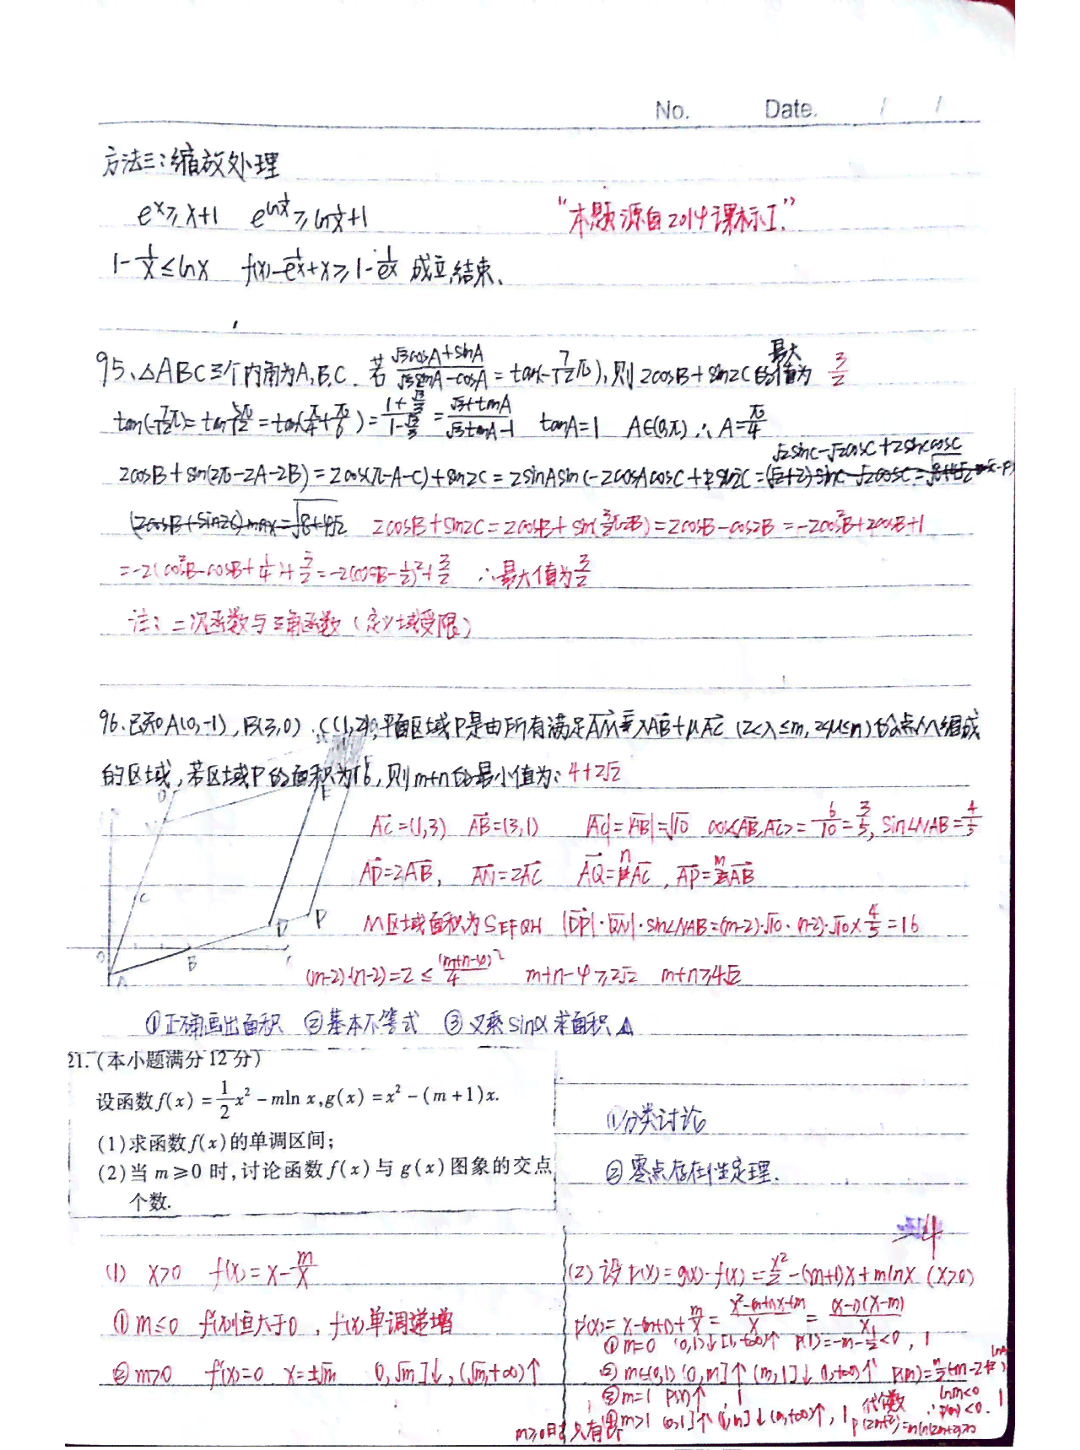 No. Date. / /
方法三：缩放处理
e^x≥x+1 e^{ln1/x}≥ln1/x+1 “本题源自2014课标I.”
1-1/x≤lnx f(x)-1/ex+x≥1-1/ex 成立,结束.
95、△ABC三个内角为A,B,C. 若 (√3cosA+sinA)/(√3sinA-cosA)=tan(-7/12π),则2cosB+sin2C的最大值为 3/2
tan(-7/12π)=tan5π/12=tan(π/4+π/6)=(1+√3/3)/(1-√3/3)=(√3+tanA)/(√3tanA-1) tanA=1 A∈(0,π) ∴A=π/4
2cosB+sin(2π-2A-2B)=2cos(π-A-C)+sin2C=2sinAsinC-2cosAcosC+sin2C= √2sinC-√2cosC+2sinCcosC
(2cosB+sin2C)max=√(8+4√2) 2cosB+sin2C=2cosB+sin(3/2π-2B)=2cosB-cos2B=-2cos²B+2cosB+1
=-2(cos²B-cosB+1/4)+3/2=-2(cosB-1/2)²+3/2 ∴最大值为3/2
注：二次函数与三角函数（定义域受限）
96.已知A(0,-1),B(3,0),C(1,2),平面区域P是由所有满足AM=λAB+μAC (2<λ≤m,2<μ≤n)的点M组成
的区域,若区域P的面积为16,则m+n的最小值为：4+2√2
AC=(1,3) AB=(3,1) |AC|=|AB|=√10 cos<AB,AC>=6/10=3/5, sin∠NAB=4/5
AD=2AB, AN=2AC AQ=nAC, AP=mAB
M区域面积为S_EFQH |DP|·|QN|·sin∠NAB=(m-2)·√10·(n-2)·√10×4/5=16
(m-2)(n-2)=2≤(m+n-4)²/4 m+n-4≥2√2 m+n≥4√2
①正确画出面积 ②基本不等式 ③ sinα求面积
21.(本小题满分12分)
设函数f(x)=1/2x²-mln x,g(x)=x²-(m+1)x.
(1)求函数f(x)的单调区间;
(2)当m≥0时,讨论函数f(x)与g(x)图象的交点
个数.
①分类讨论
②零点存在性定理.
-4
(1) x>0 f'(x)=x-m/x
①m≤0 f'(x)恒大于0, f(x)单调递增
②m>0 f'(x)=0 x=±√m 0,√m]↓,(√m,+∞)↑
(2)设p(x)=g(x)-f(x)=x²/2-(m+1)x+mlnx (x>0)
p'(x)=x-(m+1)+m/x=(x²-(m+1)x+m)/x=(x-1)(x-m)/x
①m=0 (0,1)↓[1,+∞)↑ p(1)=-m-1/2<0, 1
②m∈(0,1) (0,m]↑ (m,1]↓ (1,+∞)↑ lnm<0 ∴p(m)<0. 1
③m=1 p(x)↑ 1
④m>1 (0,1]↑ (1,m]↓ (m,+∞)↑, 1 代个数 p(2m+2)=mln(2m+2)>0
m≥0时只有1个